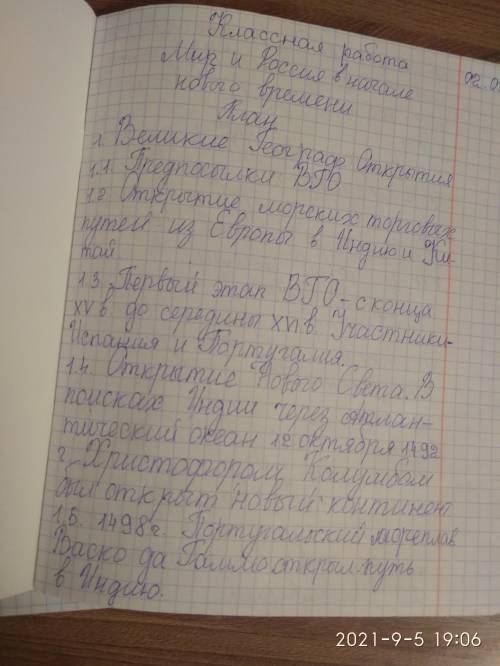 Классная работа
02.0
Мир и Россия в начале
нового времени
План
1. Великие Географ Открытия
1.1. Предпосылки ВГО
1.2 Открытие морских торговых
путей из Европы в Индию и Ки-
тай.
1.3. Первый этап ВГО - с конца
XV в. до середины XVI в. Участники-
Испания и Португалия.
1.4. Открытие Нового Света. В
поисках Индии через атлан-
тический океан 12 октября 1492
г. Христофором Колумбом
был открыт новый континент
1.5. 1498 г. Португальский мореплав
Васко да Гаммо открыл путь
в Индию.
2021-9-5 19:06